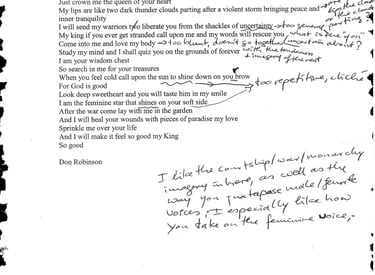 Just crown me the queen of your heart
My lips are like two dark thunder clouds parting after a violent storm bringing peace and
inner tranquility
I will send my warriors two liberate you from the shackles of uncertainty → too general,
My king if you ever get stranded call upon me and my words will rescue you what is the "you"
Come into me and love my body → too blunt, doesn't go together uncertain about?
Study my mind and I shall quiz you on the grounds of forever with the tenderness
I am your wisdom chest + imagery of the rest
So search in me for your treasures
When you feel cold call upon the sun to shine down on you brow r
For God is good → too repetitive, cliché
Look deep sweetheart and you will taste him in my smile
I am the feminine star that shines on your soft side
After the war come lay with me in the garden
And I will heal your wounds with pieces of paradise my love
Sprinkle me over your life
And I will make it feel so good my King
So good
Don Robinson
I like the courtship/war/monarchy
imagery in here, as well as the
way you juxtapose male/female
voices, I especially like how
you take on the feminine voice,